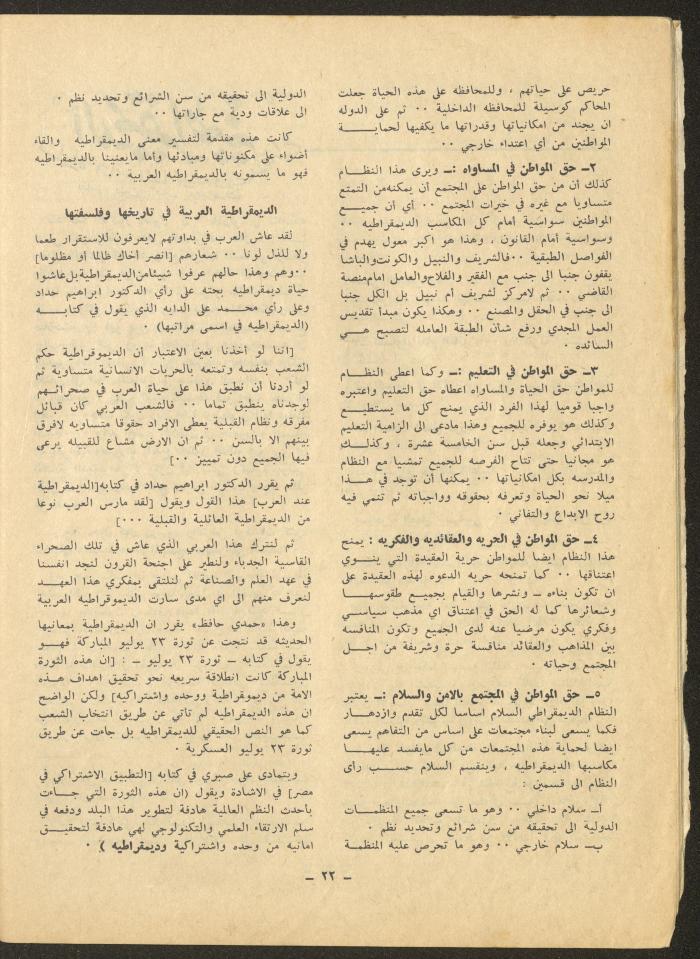 حريص على حياتهم ، وللمحافظه على هذه الحياة جعلت
المحاكم كوسيلة للمحافظه الداخلية ٠٠ ثم على الدوله
ان يجند من امكانياتها وقدراتها ما يكفيها لحماية
المواطنين من أي اعتداء خارجي ٠٠
٢ــ حق المواطن في المساواه :ــ ويرى هذا النظام
كذلك أن من حق المواطن على المجتمع أن يمكنه من التمتع
متساويا مع غيره في خيرات المجتمع ٠٠ أي أن جميع
المواطنين سواسية أمام كل المكاسب الديمقراطيه ٠٠
وسواسية أمام القانون ، وهذا هو اكبر معول يهدم في
الفواصل الطبقية ٠٠ فالشريف والنبيل والكونت والباشا
يقفون جنبا الى جنب مع الفقير والفلاح والعامل امام منصة
القاضي ٠٠ ثم لامركز لشريف أم نبيل بل الكل جنبا
الى جنب في الحقل والمصنع ٠٠ وهكذا يكون مبدأ تقديس
العمل المجدي ورفع شأن الطبقة العامله لتصبح هي
السائده ٠
٣ــ حق المواطن في التعليم :ــ وكما اعطى النظام
للمواطن حق الحياة والمساواه اعطاه حق التعليم واعتبره
واجبا قوميا لهذا الفرد الذي يمنح كل ما يستطيع
وكذلك هو يوفره للجميع وهذا مادعى الى الزامية التعليم
الابتدائي وجعله قبل سن الخامسة عشرة ، وكذلك
هو مجانيا حتى تتاح الفرصه للجميع تمشيا مع النظام
والمدرسه بكل امكانياتها ٠٠ يمكنها أن توجد في هذا
ميلا نحو الحياة وتعرفه بحقوقه وواجباته ثم تنمي فيه
روح الابداع والتفاني ٠
٤ــ حق المواطن في الحريه والعقائديه والفكريه : يمنح
هذا النظام ايضا للمواطن حرية العقيدة التي ينوي
اعتناقها ٠٠ كما تمنحه حريه الدعوه لهذه العقيدة على
ان تكون بناءه ــ ونشرها والقيام بجميع طقوسها
وشعائرها كما له الحق في اعتناق اي مذهب سياسي
وفكري يكون مرضيا عنه لدى الجميع وتكون المنافسه
بين المذاهب والعقائد منافسة حرة وشريفة من اجل
المجتمع وحياته ٠
٥ــ حق المواطن في المجتمع بالامن والسلام :ــ يعتبر
النظام الديمقراطي السلام اساسا لكل تقدم وازدهار
فكما يسعى لبناء مجتمعات على اساس من التفاهم يسعى
ايضا لحماية هذه المجتمعات من كل مايفسد عليها
مكاسبها الديمقراطيه ، وينقسم السلام حسب رأى
النظام الى قسمين :
أــ سلام داخلي ٠٠ وهو ما تسعى جميع المنظمات
الدولية الى تحقيقه من سن شرائع وتحديد نظم ٠
بــ سلام خارجي ٠٠ وهو ما تحرص عليه المنظمة
الدولية الى تحقيقه من سن الشرائع وتحديد نظم ٠
الى علاقات ودية مع جاراتها ٠٠
كانت هذه مقدمة لتفسير معنى الديمقراطيه والقاء
أضواء على مكنوناتها ومبادئها وأما مايعنينا بالديمقراطيه
فهو ما يسمونه بالديمقراطيه العربية ٠٠
الديمقراطية العربية في تاريخها وفلسفتها
لقد عاش العرب في بداوتهم لايعرفون للاستقرار طعما
ولا للذل لونا ٠٠ شعارهم [انصر أخاك ظالما أو مظلوما]
٠٠وهم وهذا حالهم عرفوا شيئا من الديمقراطية بل عاشوا
حياة ديمقراطيه بحته على رأي الدكتور ابراهيم حداد
وعلى رأي محمد على الدايه الذي يقول في كتابه
(الديمقراطيه في اسمى مراتبها) ٠
[اننا لو أخذنا بعين الاعتبار أن الديموقراطية حكم
الشعب بنفسه وتمتعه بالحريات الانسانية متساوية ثم
لو أردنا أن نطبق هذا على حياة العرب في صحرائهم
لوجدناه ينطبق تماما ٠٠ فالشعب العربي كان قبائل
مفرقه ونظام القبلية يعطى الافراد حقوقا متساويه لافرق
بينهم الا بالسن ٠٠ ثم ان الارض مشاع للقبيله يرعى
فيها الجميع دون تمييز ٠٠]
ثم يقرر الدكتور ابراهيم حداد في كتابه [الديمقراطية
عند العرب] هذا القول ويقول [لقد مارس العرب نوعا
من الديمقراطية العائلية والقبلية ٠٠٠]
ثم لنترك هذا العربي الذي عاش في تلك الصحراء
القاسية الجدباء ولنطير على اجنحة القرون لنجد انفسنا
في عهد العلم والصناعة ثم لنلتقى بمفكري هذا العهد
لنعرف منهم الى اي مدى سارت الديموقراطيه العربية
وهذا «حمدي حافظ» يقرر ان الديمقراطية بمعانيها
الحديثه قد نتجت عن ثورة ٢٣ يوليو المباركة فهو
يقول في كتابه ــ ثورة ٢٣ يوليو ــ : [ان هذه الثورة
المباركة كانت انطلاقة سريعه نحو تحقيق اهداف هذه
الامة من ديموقراطية ووحده واشتراكيه] ولكن الواضح
ان هذه الديمقراطيه لم تاتي عن طريق انتخاب الشعب
كما هو النص الحقيقي للديمقراطيه بل جاءت عن طريق
ثورة ٢٣ يوليو العسكرية ٠
ويتمادى على صبري في كتابه [التطبيق الاشتراكي في
مصر] في الاشادة ويقول (ان هذه الثورة التي جاءت
بأحدث النظم العالمية هادفة لتطوير هذا البلد ودفعه في
سلم الارتقاء العلمي والتكنولوجي لهي هادفة لتحقيق
امانيه من وحده واشتراكية وديمقراطيه ) ٠
ــ ٢٢ ــ